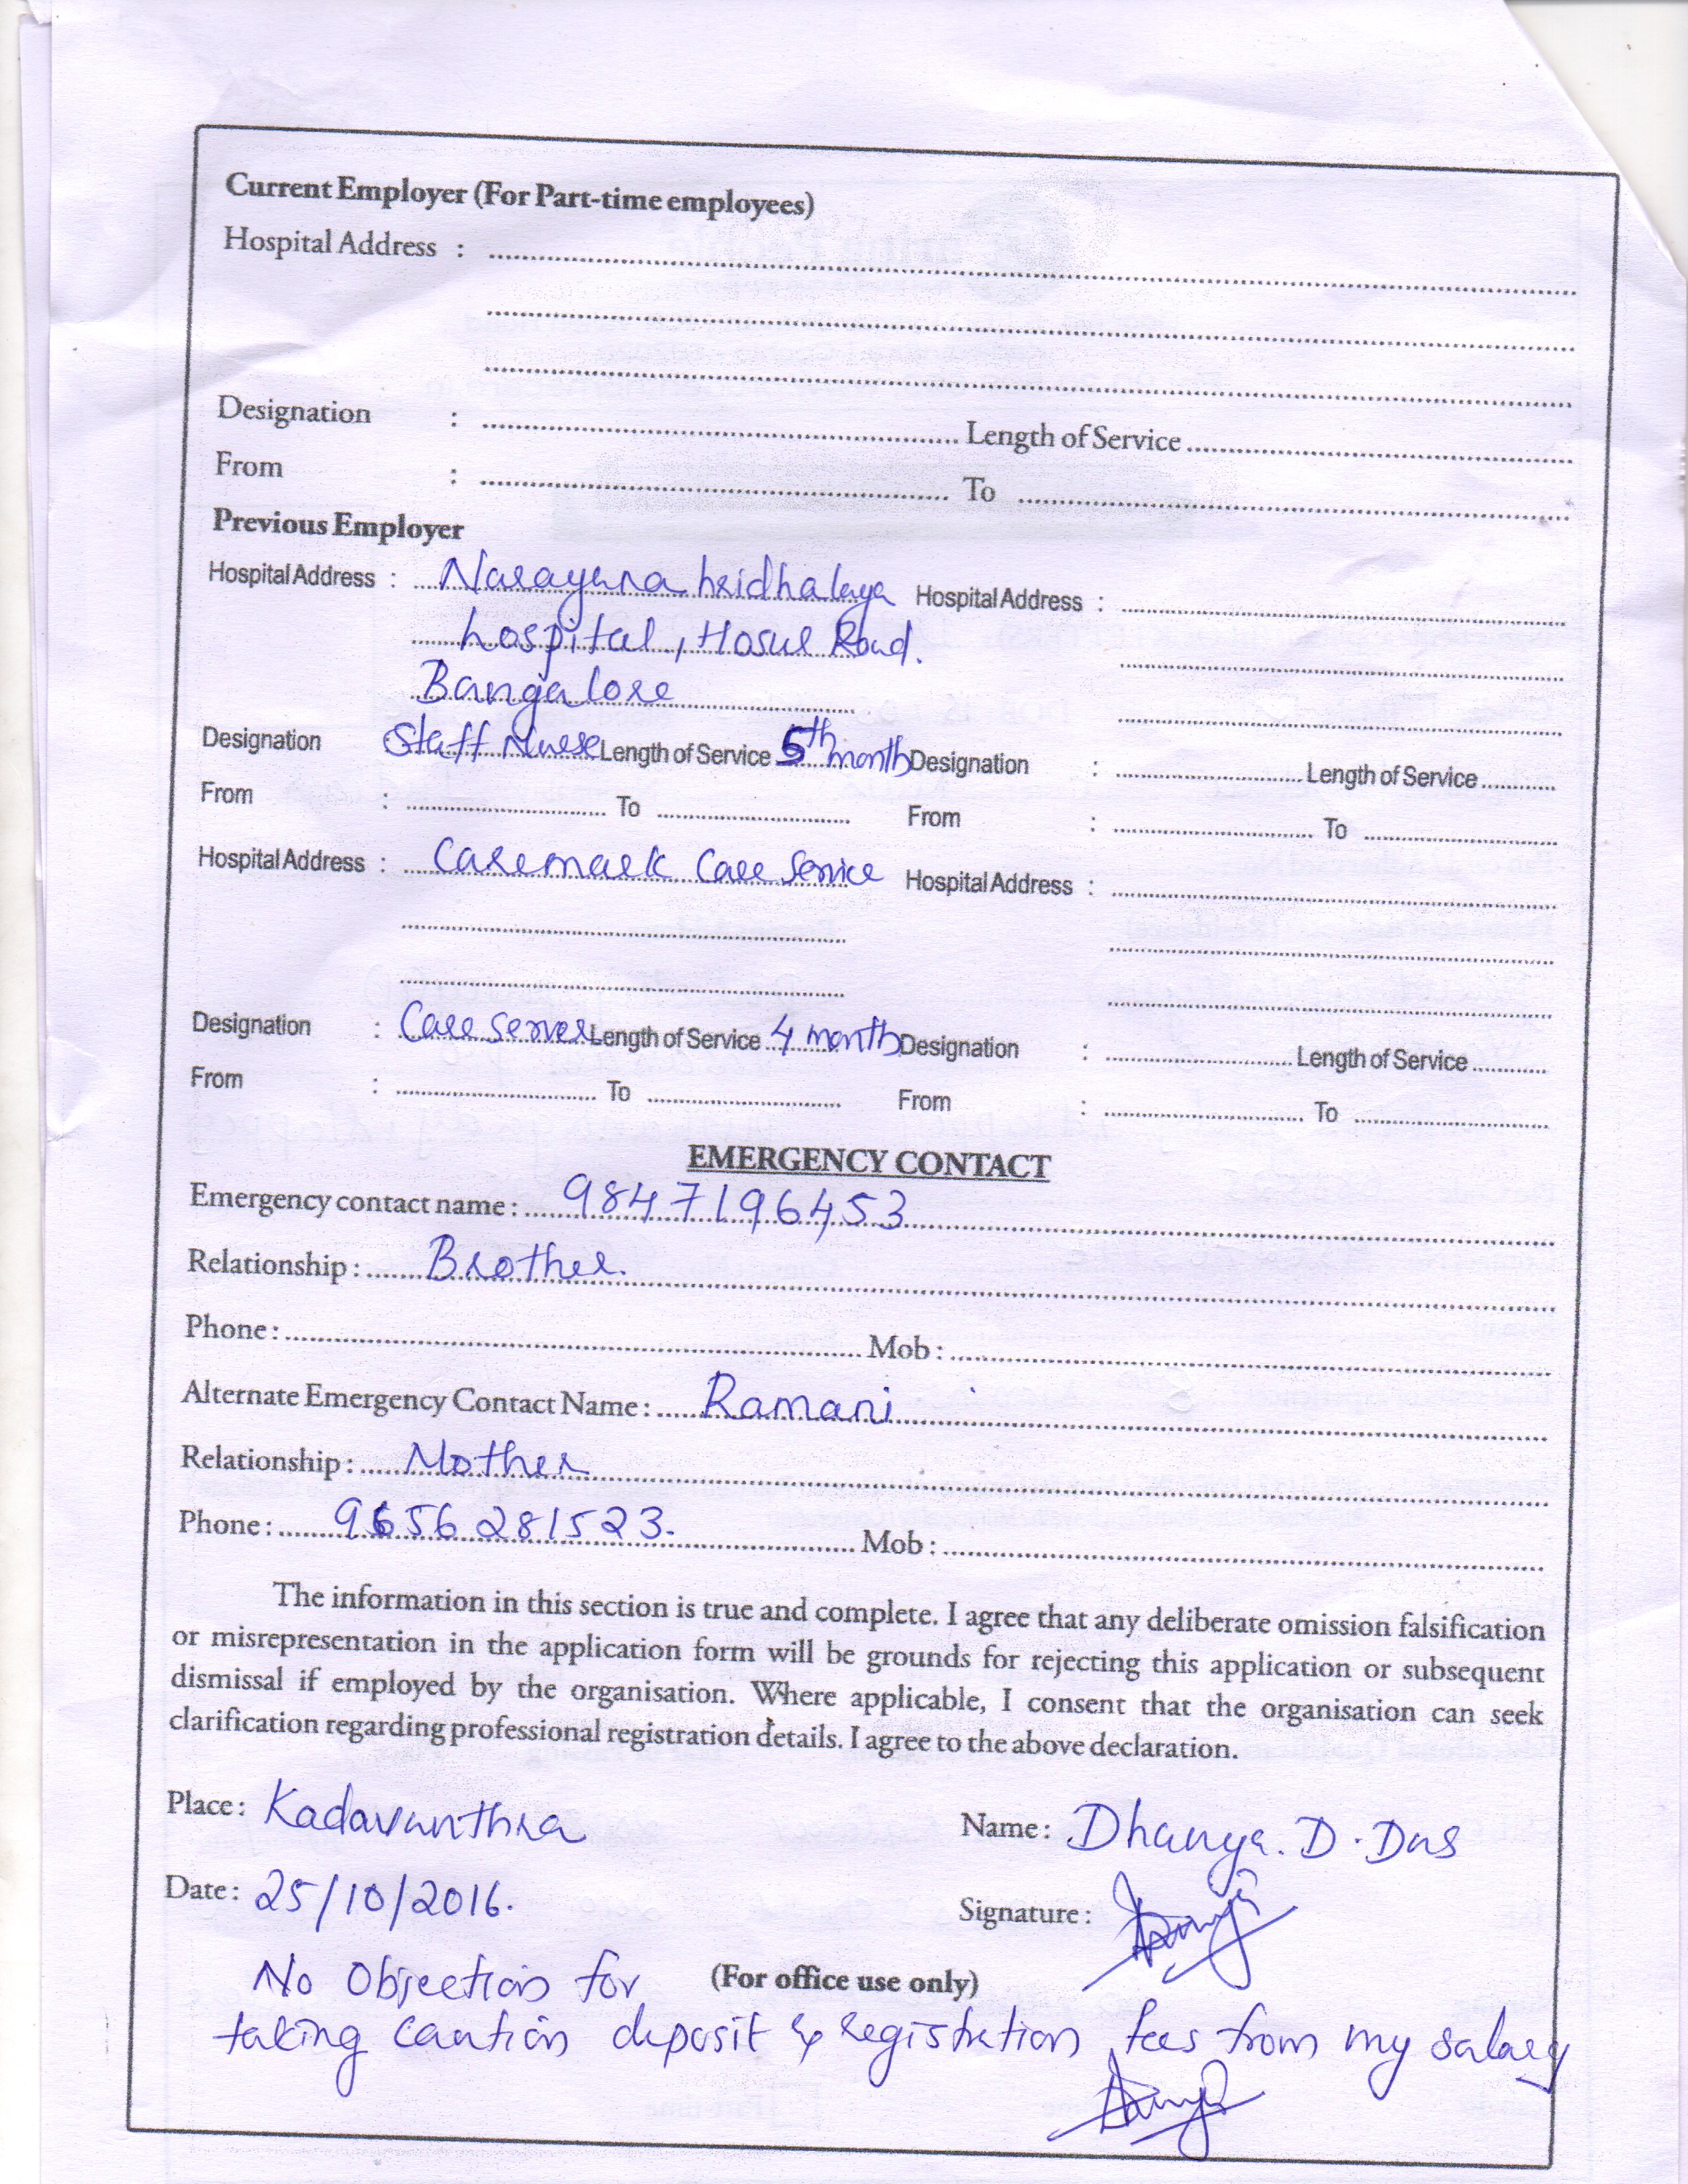 Current Employer (For Part-time employees)
Hospital Address :
Designation : Length of Service
From : To
Previous Employer
Hospital Address : Narayana hridhalaya Hospital Address :
hospital, Hosur Road.
Bangalore
Designation Staff Nurse Length of Service 5th month Designation : Length of Service
From : To From : To
Hospital Address : Caremark Care Service Hospital Address :
Designation : Care server Length of Service 4 month Designation : Length of Service
From : To From : To
EMERGENCY CONTACT
Emergency contact name : 9847196453
Relationship : Brother.
Phone : Mob :
Alternate Emergency Contact Name : Ramani
Relationship : Mother
Phone : 9656281523. Mob :
The information in this section is true and complete. I agree that any deliberate omission falsification
or misrepresentation in the application form will be grounds for rejecting this application or subsequent
dismissal if employed by the organisation. Where applicable, I consent that the organisation can seek
clarification regarding professional registration details. I agree to the above declaration.
Place : Kadavanthra Name : Dhanya. D. Das
Date : 25/10/2016. Signature :
No Objection for (For office use only)
taking caution deposit & registration fees from my salary